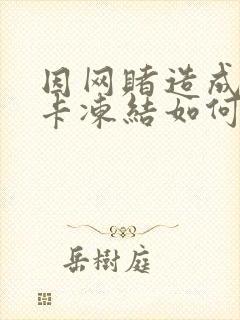 因网賭造成
卡凍結如何
岳樹庭